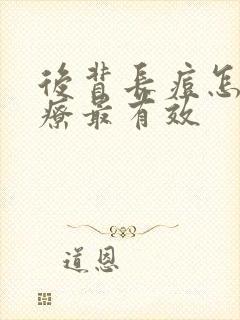 後背長痘怎
療最有效
道恩